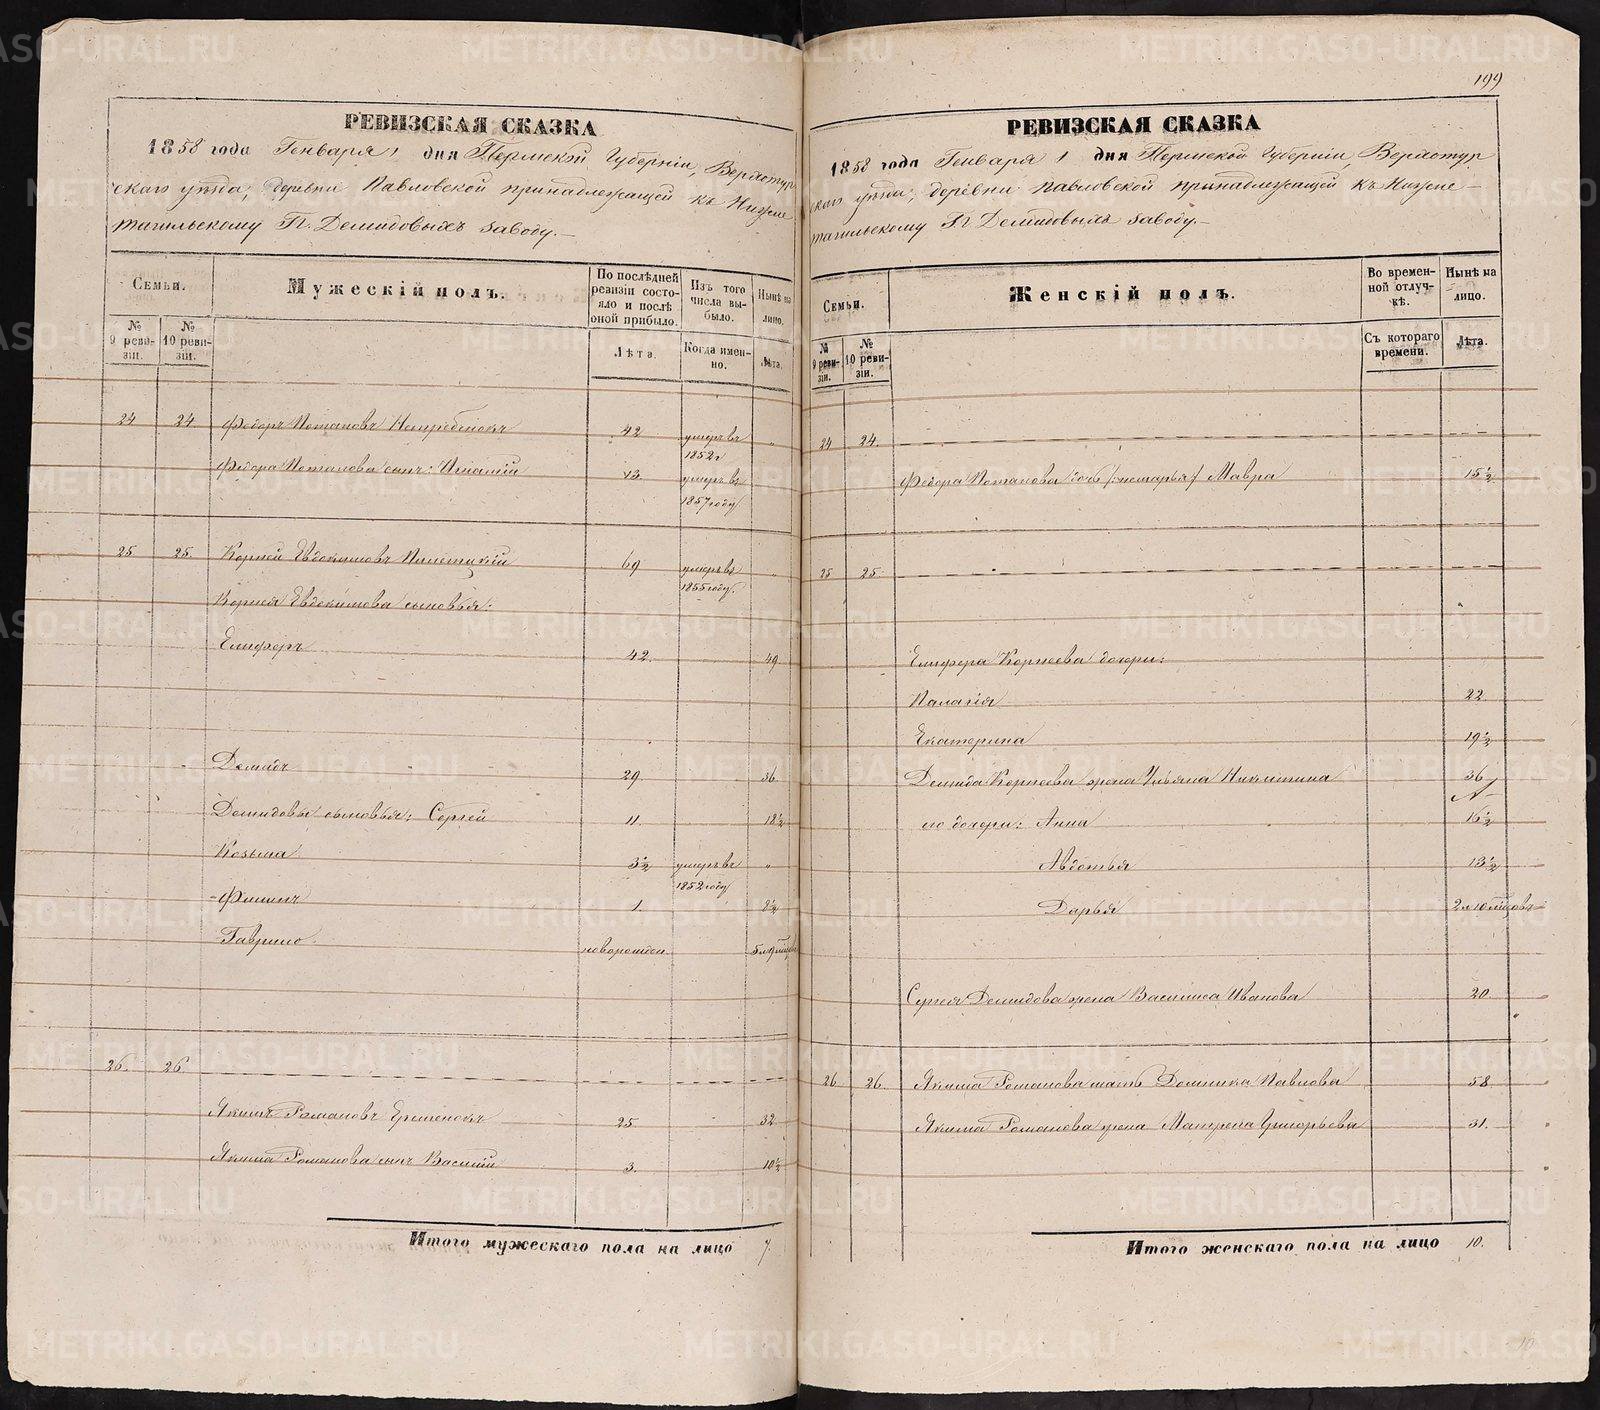 199
РЕВИЗСКАЯ СКАЗКА
1858 года Генваря 1 дня Пермской Губерніи, Верхотур
скаго уѣзда, деревни Павловской принадлежащей къ Нижне
тагильскому Гг. Демидовыхъ заводу.—
Семьи.
Мужескій полъ.
По послѣдней ревизіи состояло и послѣ оной прибыло.
Изъ того числа выбыло.
Нынѣ на лицо.
№ 9 ревизіи.
№ 10 ревизіи.
Лѣта.
Когда именно.
Лѣта.
24 24 Федоръ Потаповъ 42 умеръ въ 1852 г "
Федора Потапова сынъ: Игнатій 13 умеръ въ 1857 году
25 25 Корней Евдокимовъ 69 умеръ въ 1855 году. "
Корнея Евдокимова сыновья:
Елиферъ 42 49
Демидъ 29 36
Демидовы сыновья: Сергей 11. 18½
Козьма 3½ умеръ въ 1852 году "
Филипъ 1. 8½
Гаврило новорожден.
26 26
Якимъ Романовъ 25 32
Якима Романова сынъ Василій 3. 10½
Итого мужескаго пола на лицо 7.
РЕВИЗСКАЯ СКАЗКА
1858 года Генваря 1 дня Пермской Губерніи, Верхотур
скаго уѣзда, деревни Павловской принадлежащей къ Нижне—
тагильскому Гг Демидовыхъ заводу.—
Семьи.
Женскій полъ.
Во временной отлучкѣ.
Нынѣ на лицо.
№ 9 ревизіи.
№ 10 ревизіи.
Съ котораго времени.
Лѣта.
24 24.
Федора Потапова дочь Мавра 15½
25 25
Елифера Корнеева дочери:
Палагія 22
Екатерина 19½
Демида Корнеева жена Ульяна Никитина 36
его дочери: Анна 16½
Авдотья 13½
Дарья
Сергея Демидова жена Василиса Иванова 20
26 26. Якима Романова мать Домника Павлова 58
Якима Романова жена Матрена Григорьева 31.
Итого женскаго пола на лицо 10.
10
METRIKI.GASO-URAL.RU